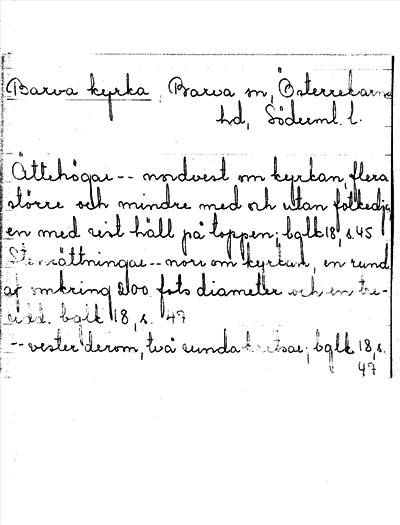 Barva kyrka, Barva sn, Österrekarne
hd, Söderml. l.
Ättehögar -- nordvest om kyrkan, flera
större och mindre med och utan fotkedja,
en med rest häll på toppen; bglk 18, s. 45
Stensättningar -- norr om kyrkan, en rund
af omkring 200 fots diameter och en tre-
udd. bglk 18, s. 47
-- vester derom, två runda kretsar; bglk 18, s.
47